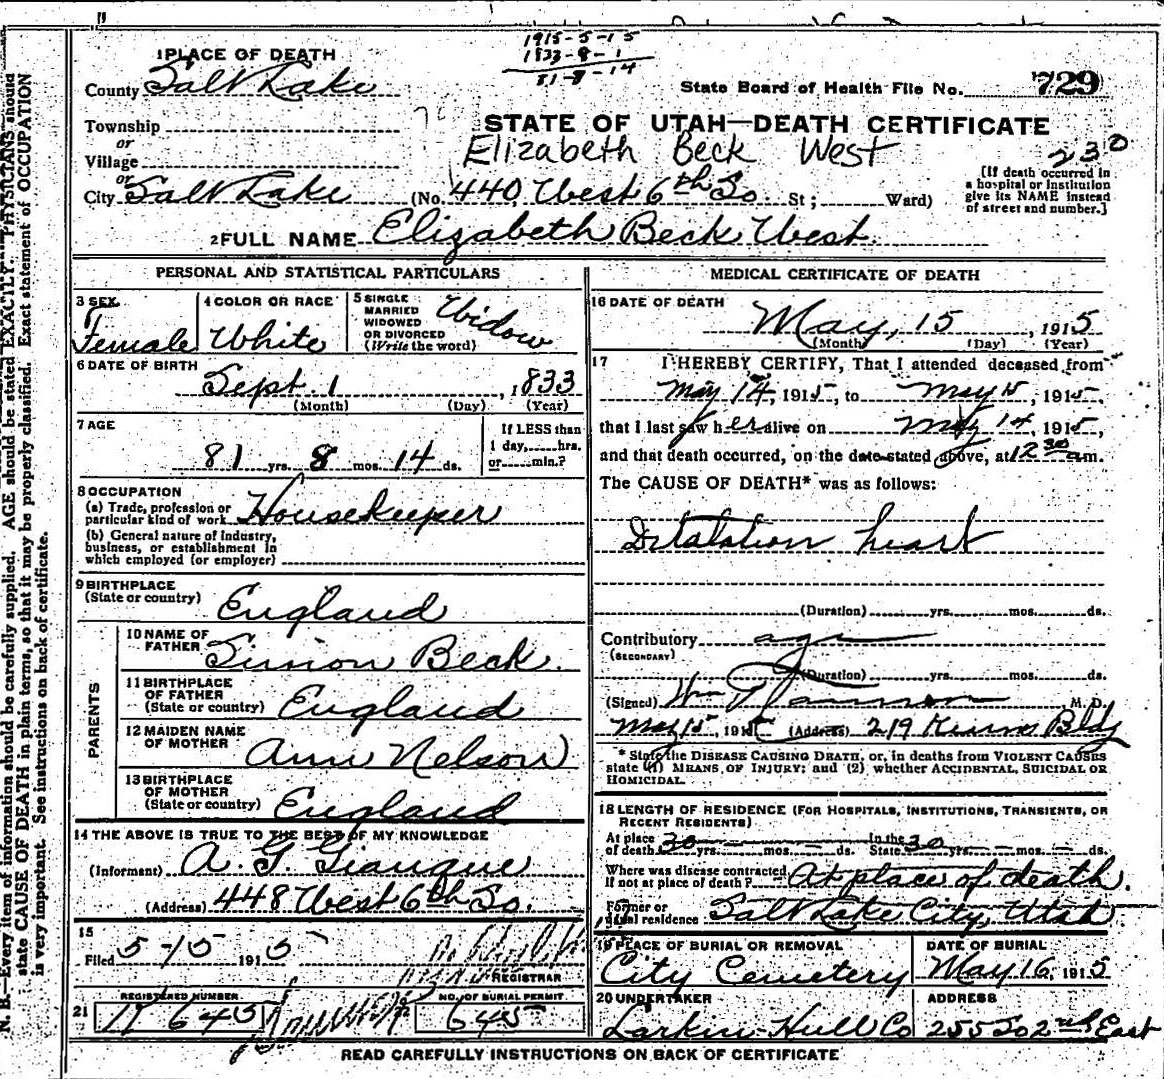 1915-5-15
1833-8-1
81-8-14
1 PLACE OF DEATH
County Salt Lake
State Board of Health File No. 729
Township
or
Village
or
City Salt Lake
STATE OF UTAH—DEATH CERTIFICATE
Elizabeth Beck West
230
(No. 440 West 6th So. St; Ward)
[If death occurred in
a hospital or institution
give its NAME instead
of street and number.]
2 FULL NAME Elizabeth Beck West.
PERSONAL AND STATISTICAL PARTICULARS
3 SEX
Female
4 COLOR OR RACE
White
5 SINGLE
MARRIED
WIDOWED
OR DIVORCED
(Write the word)
Widow
6 DATE OF BIRTH
Sept. 1, 1833
(Month) (Day) (Year)
7 AGE
81 yrs. 8 mos. 14 ds.
If LESS than
1 day, hrs.
or min.?
8 OCCUPATION
(a) Trade, profession or
particular kind of work Housekeeper
(b) General nature of industry,
business, or establishment in
which employed (or employer)
9 BIRTHPLACE
(State or country) England
PARENTS
10 NAME OF
FATHER Simon Beck.
11 BIRTHPLACE
OF FATHER
(State or country) England
12 MAIDEN NAME
OF MOTHER Ann Nelson
13 BIRTHPLACE
OF MOTHER
(State or country) England
14 THE ABOVE IS TRUE TO THE BEST OF MY KNOWLEDGE
(Informant) A. G. Giauque
(Address) 448 West 6th So.
15
Filed 5-15 1915
REGISTRAR
21
REGISTERED NUMBER
645
NO. OF BURIAL PERMIT
645
MEDICAL CERTIFICATE OF DEATH
16 DATE OF DEATH
May, 15, 1915
(Month) (Day) (Year)
17 I HEREBY CERTIFY, That I attended deceased from
May 14, 1915, to May 15, 1915,
that I last saw her alive on May 14, 1915,
and that death occurred, on the date stated above, at 12 30 am.
The CAUSE OF DEATH* was as follows:
Ditalation heart
(Duration) yrs. mos. ds.
Contributory age
(SECONDARY)
(Duration) yrs. mos. ds.
(Signed) Wm M. D.
May 15, 1915 (Address) 219 Kearns Bldg
* State the DISEASE CAUSING DEATH, or, in deaths from VIOLENT CAUSES
state (1) MEANS OF INJURY; and (2) whether ACCIDENTAL, SUICIDAL OR
HOMICIDAL.
18 LENGTH OF RESIDENCE (FOR HOSPITALS, INSTITUTIONS, TRANSIENTS, OR
RECENT RESIDENTS)
At place
of death 30 yrs. mos. ds. In the
State 30 yrs. mos. ds.
Where was disease contracted
if not at place of death? At place of death.
Former or
usual residence Salt Lake City, Utah
19 PLACE OF BURIAL OR REMOVAL
City Cemetery
DATE OF BURIAL
May 16, 1915
20 UNDERTAKER
Larkin-Hull Co
ADDRESS
255 So 2nd East
READ CAREFULLY INSTRUCTIONS ON BACK OF CERTIFICATE
N. B.—Every item of information should be carefully supplied. AGE should be stated EXACTLY. PHYSICIANS should
state CAUSE OF DEATH in plain terms, so that it may be properly classified. Exact statement of OCCUPATION
is very important. See instructions on back of certificate.